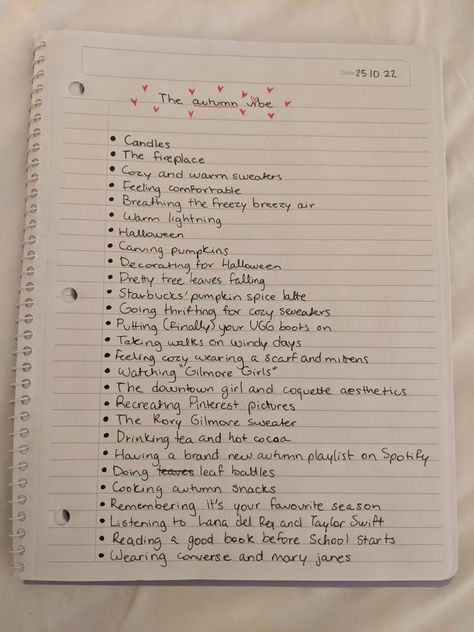 Date: 25.10.22
The autumn vibe
• Candles
• The fireplace
• Cozy and warm sweaters
• Feeling comfortable
• Breathing the freezy breezy air
• Warm lightning
• Halloween
• Carving pumpkins
• Decorating for Halloween
• Pretty tree leaves falling
• Starbucks' pumpkin spice latte
• Going thrifting for cozy sweaters
• Putting (finally) your UGG boots on
• Taking walks on windy days
• Feeling cozy wearing a scarf and mittens
• Watching "Gilmore Girls"
• The downtown girl and coquette aesthetics
• Recreating Pinterest pictures
• The Rory Gilmore sweater
• Drinking tea and hot cocoa
• Having a brand new autumn playlist on Spotify
• Doing leaves leaf battles
• Cooking autumn snacks
• Remembering it's your favourite season
• Listening to Lana del Rey and Taylor Swift
• Reading a good book before School starts
• Wearing converse and mary janes